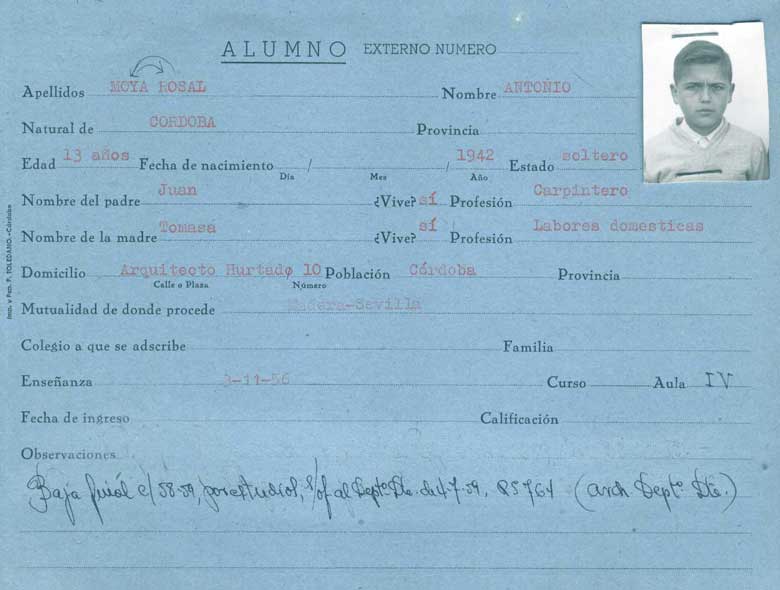 ALUMNO EXTERNO NUMERO
Apellidos MOYA ROSAL Nombre ANTOÑIO
Natural de CORDOBA Provincia
Edad 13 años Fecha de nacimiento / / 1942 Estado soltero
Día Mes Año
Nombre del padre Juan ¿Vive? sí Profesión Carpintero
Nombre de la madre Tomasa ¿Vive? sí Profesión Labores domesticas
Domicilio Arquitecto Hurtado 10 Población Córdoba Provincia
Calle o Plaza Número
Mutualidad de donde procede Madera-Sevilla
Colegio a que se adscribe Familia
Enseñanza 3-11-56 Curso Aula IV
Fecha de ingreso Calificación
Observaciones
Baja c/ 58-59, por estudios, s/of. al Deptº Dte. de 4-7-59, RS 764 (arch. Deptº Dte.)
Imp. y Pap. F. TOLEDANO.-Córdoba